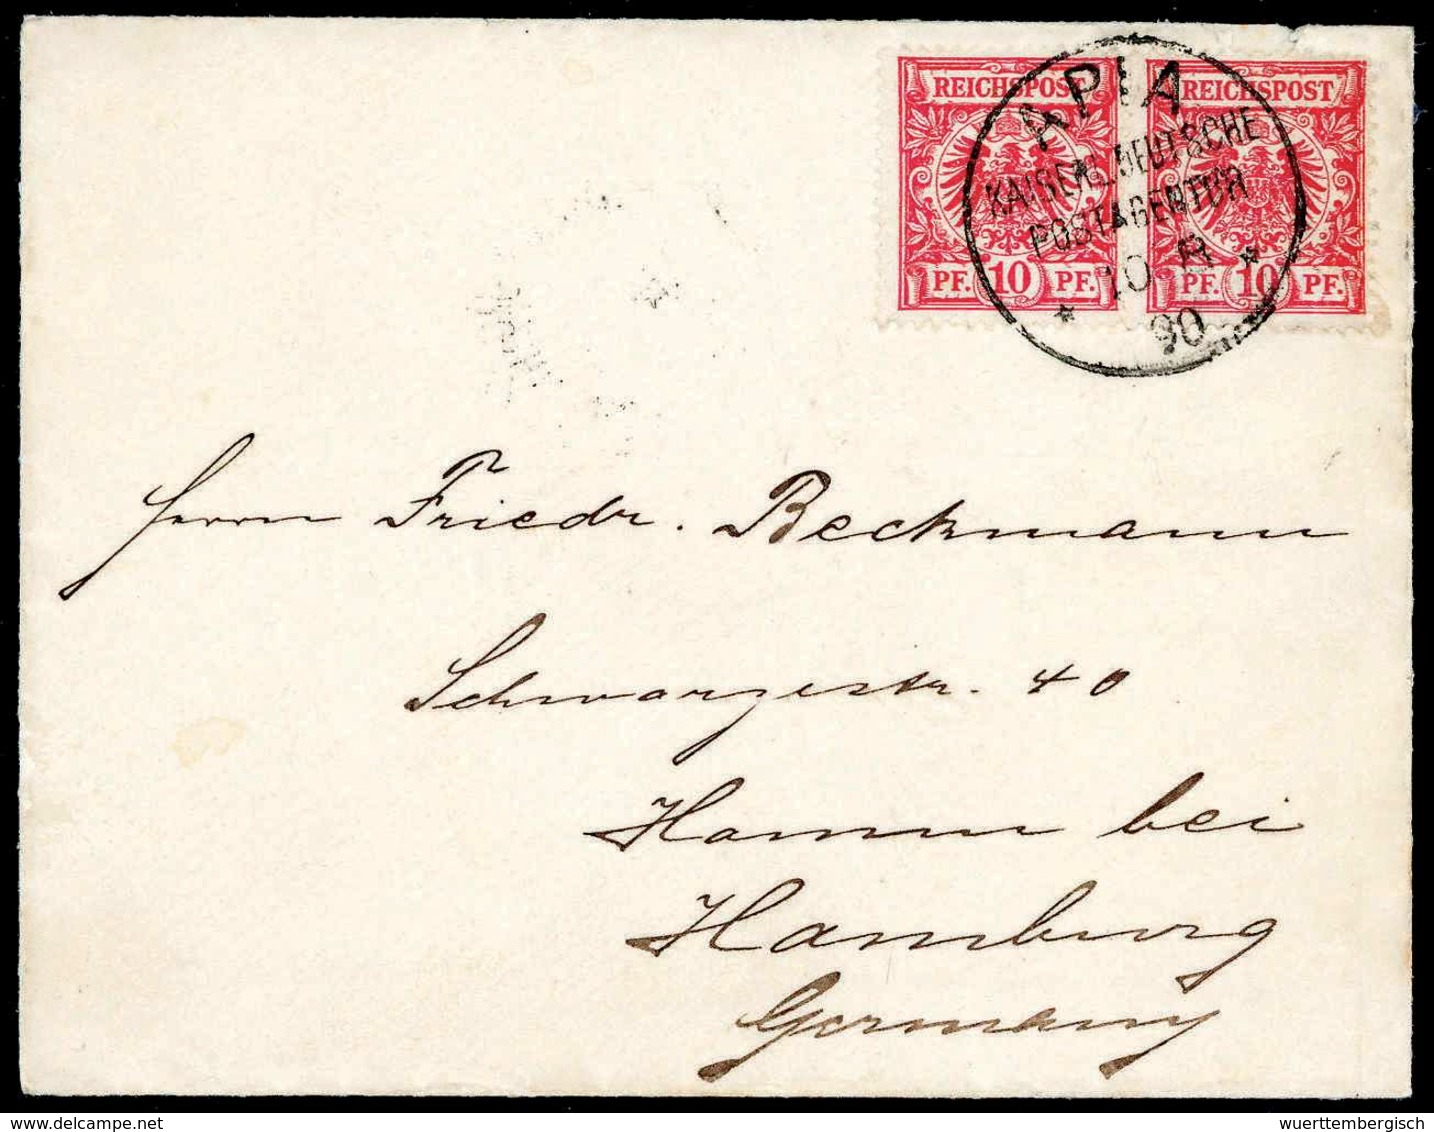 REICHSPOST REICHSPOST
APIA
KAISERL. DEUTSCHE
POSTAGENTUR
10 8
90
PF. 10 PF. PF. 10 PF.
Herrn Friedr. Beckmann
Schwarzestr. 40
Hamm bei
Hamburg
Germany
www.delcampe.net
wuerttembergisch